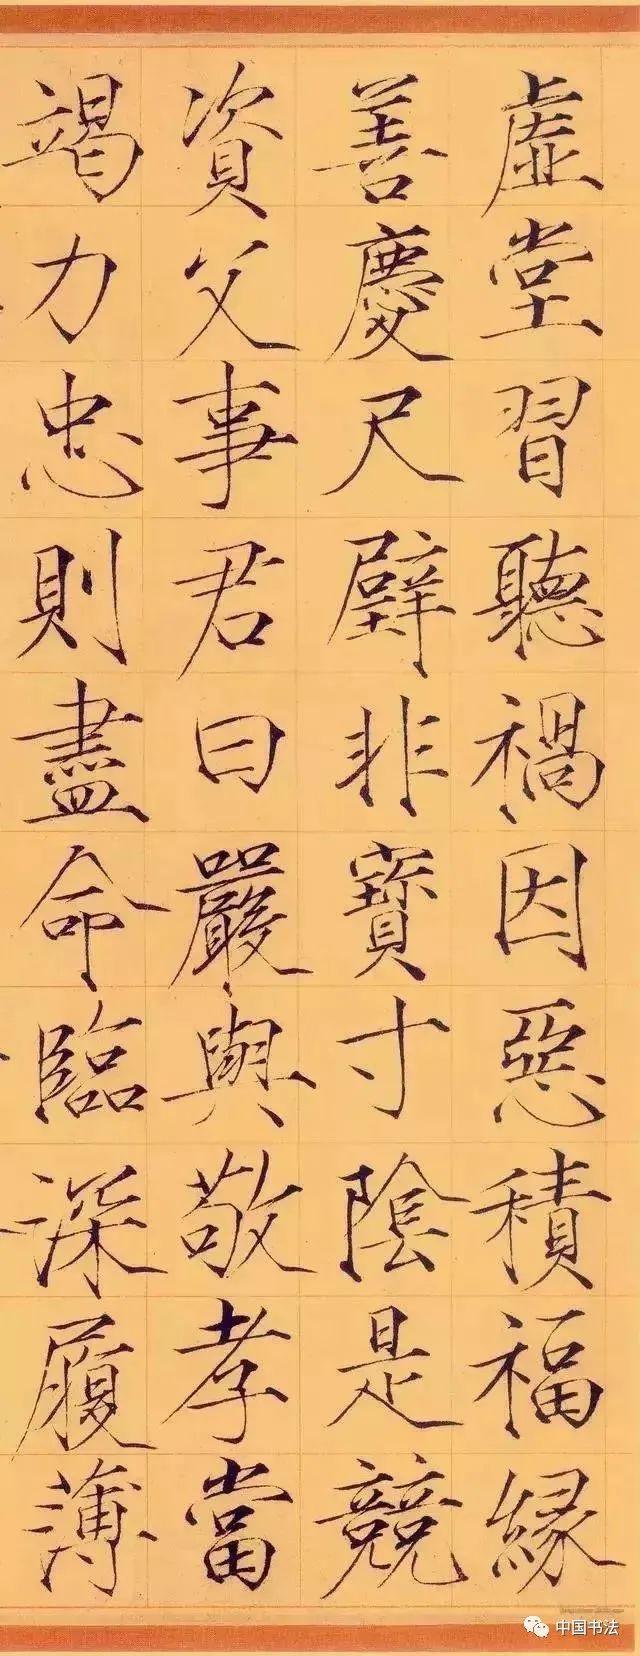 虛堂習聽禍因惡積福緣
善慶尺璧非寶寸陰是競
資父事君曰嚴與敬孝當
竭力忠則盡命臨深履薄
中国书法